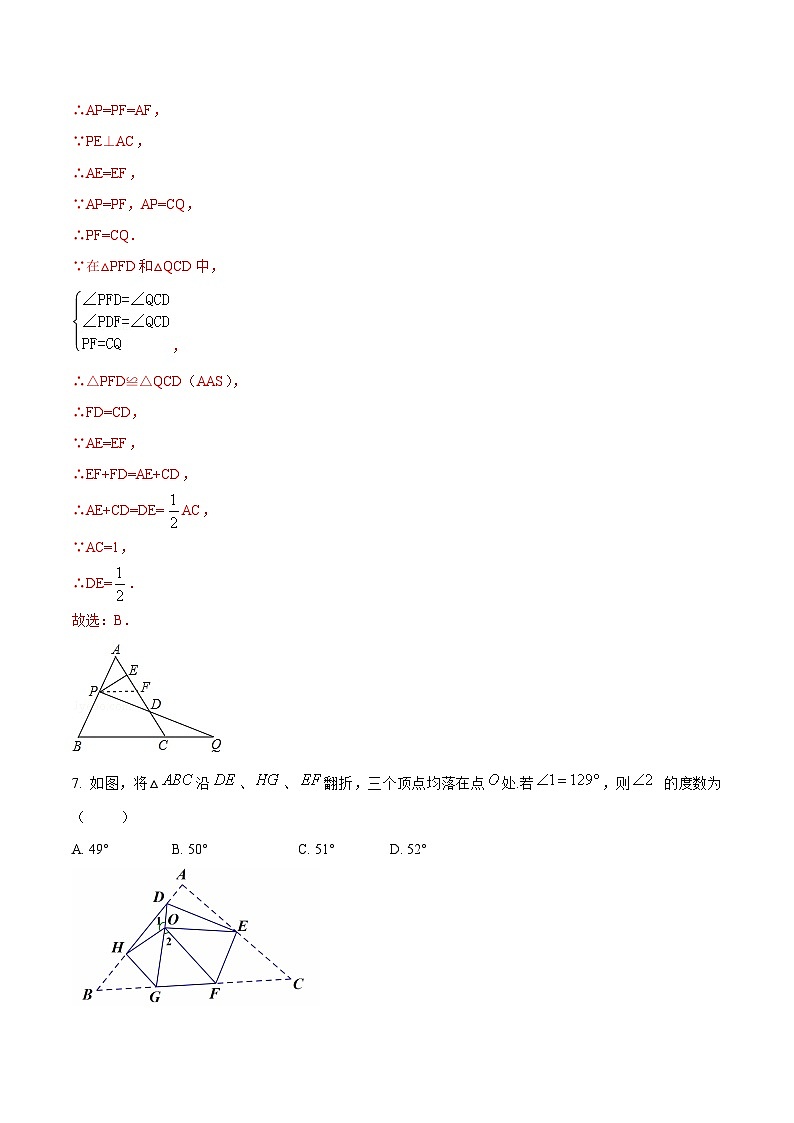 ∴AP=PF=AF，
∵PE⊥AC，
∴AE=EF，
∵AP=PF，AP=CQ，
∴PF=CQ．
∵在△PFD和△QCD中，
∠PFD=∠QCD
∠PDF=∠QCD
PF=CQ ，
∴△PFD≌△QCD（AAS），
∴FD=CD，
∵AE=EF，
∴EF+FD=AE+CD，
∴AE+CD=DE=1/2AC，
∵AC=1，
∴DE=1/2．
故选：B．
A
E
P
F
D
B
C
Q
7. 如图，将△ABC沿DE、HG、EF翻折，三个顶点均落在点O处.若∠1=129°，则∠2 的度数为
（ ）
A. 49° B. 50° C. 51° D. 52°
A
D
1 O
E
2
H
B
G
F
C